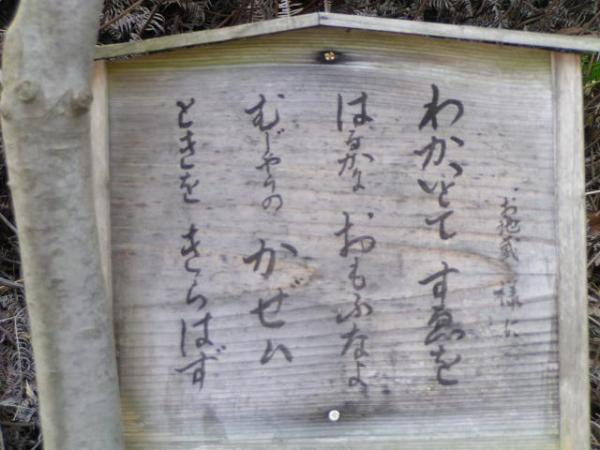 お地蔵 様
わかいとて すゑを
はるかに おもふなよ
むじやうの かぜハ
ときを きらはず